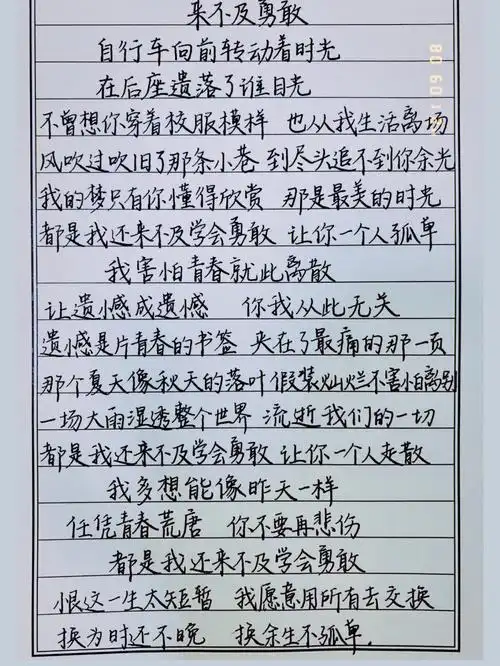 来不及勇敢
自行车向前转动着时光
在后座遗落了谁目光
不曾想你穿着校服模样 也从我生活离场
风吹过吹旧了那条小巷 到尽头追不到你余光
我的梦只有你懂得欣赏 那是最美的时光
都是我还来不及学会勇敢 让你一个人孤单
我害怕青春就此离散
让遗憾成遗憾 你我从此无关
遗憾是片青春的书签 夹在了最痛的那一页
那个夏天像秋天的落叶 假装灿烂不害怕离别
一场大雨湿透整个世界 流逝我们的一切
都是我还来不及学会勇敢 让你一个人走散
我多想能像昨天一样
任凭青春荒唐 你不要再悲伤
都是我还来不及学会勇敢
恨这一生太短暂 我愿意用所有去交换
换为时还不晚 换余生不孤单.